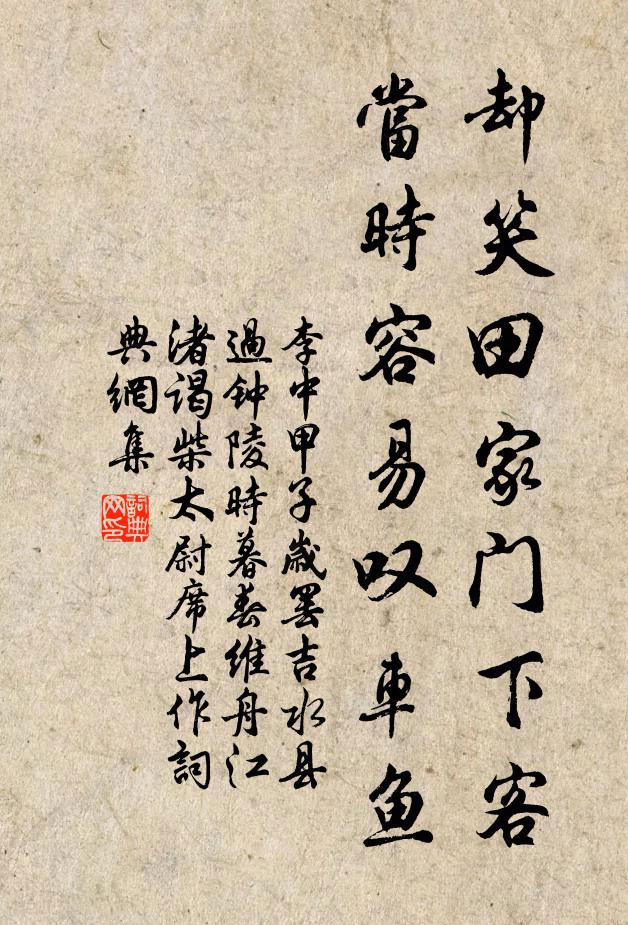 却笑田家门下客
當時容易叹車鱼
李中甲子歲罢吉水县
過钟陵時暮春维舟江
渚谒柴太尉席上作詞
典網集
詞典
网印